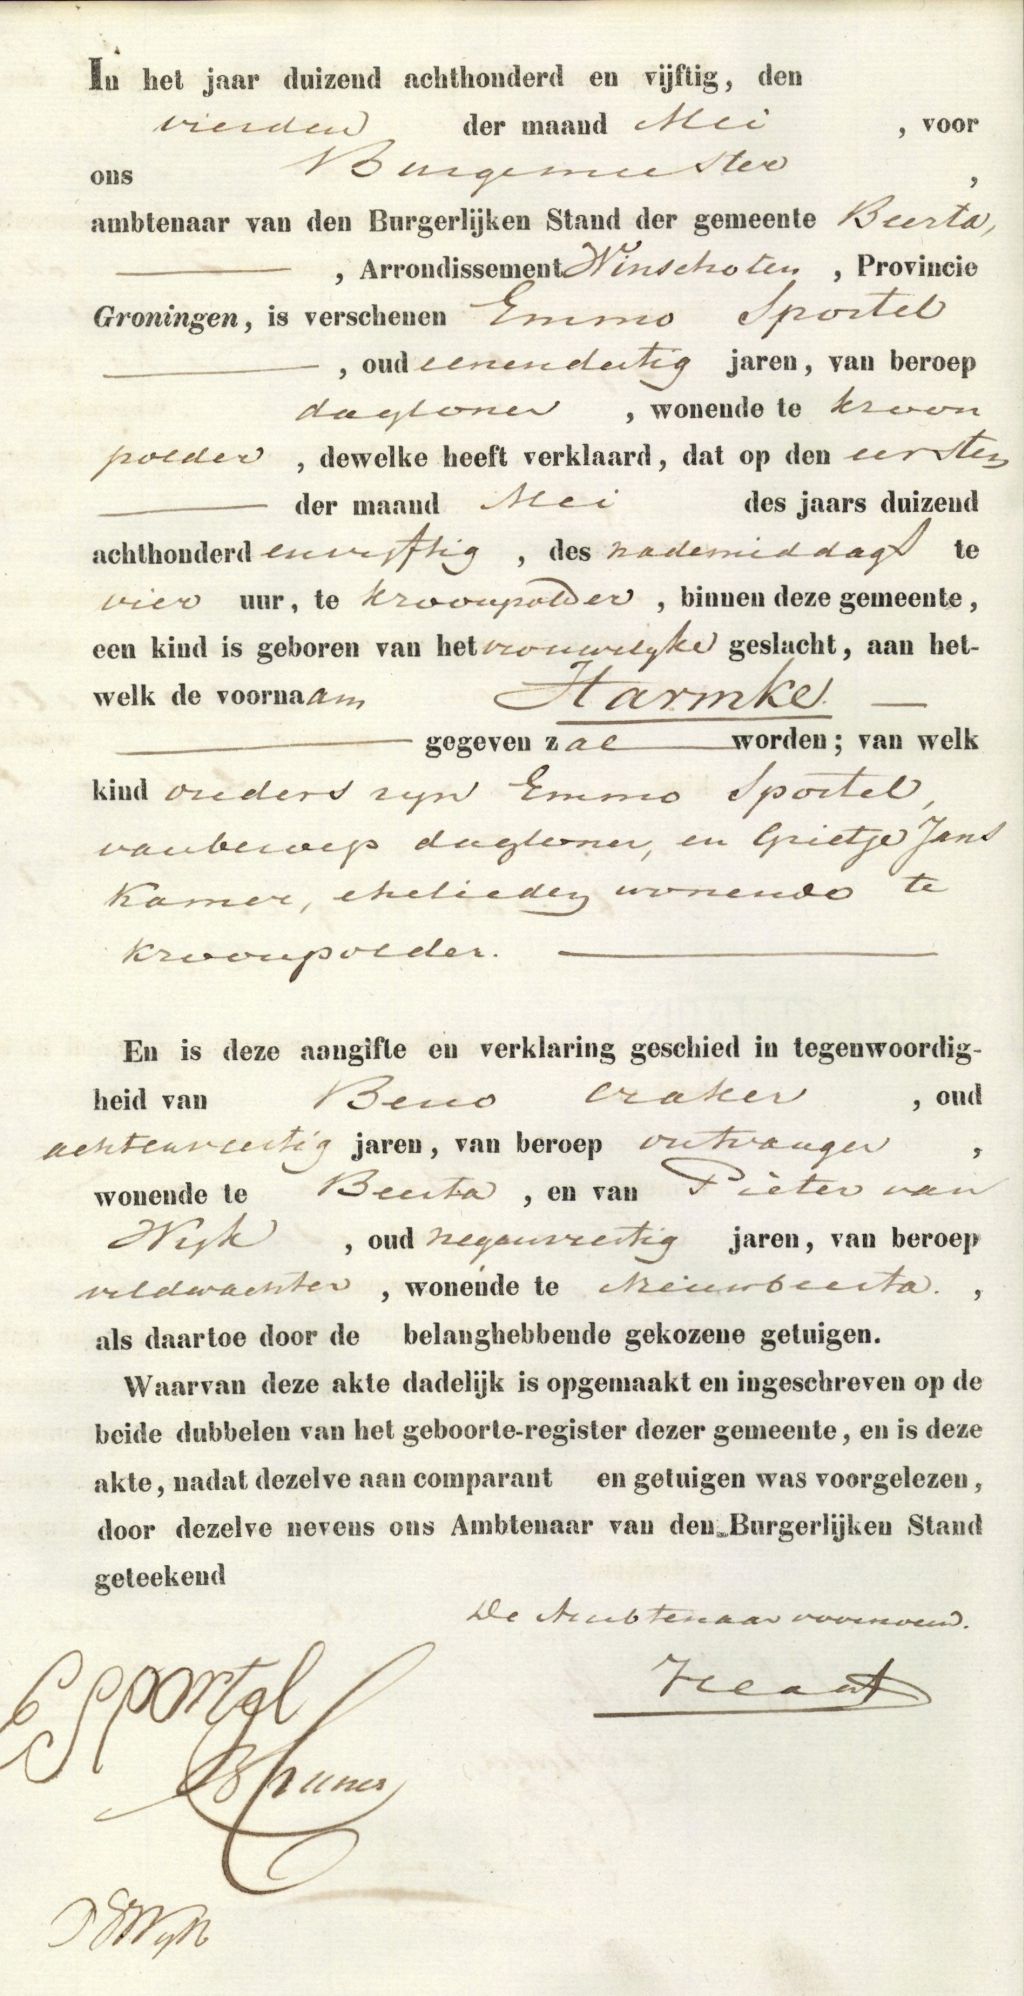 In het jaar duizend achthonderd en vijftig, den
vierden der maand Mei , voor
ons Burgemeester ,
ambtenaar van den Burgerlijken Stand der gemeente Beerta,
, Arrondissement Winschoten , Provincie
Groningen, is verschenen Emmo Sportel
, oud eenendertig jaren, van beroep
dagloner , wonende te kroon
polder , dewelke heeft verklaard, dat op den eersten
der maand Mei des jaars duizend
achthonderd en vyftig , des nademiddags te
vier uur, te kroonpolder , binnen deze gemeente,
een kind is geboren van het vrouwelyke geslacht, aan het-
welk de voornaam Harmke
gegeven zal worden; van welk
kind ouders zyn Emmo Sportel,
van beroep dagloner, en Grietje Jans
Kamer, ehelieden wonende te
kroonpolder.
En is deze aangifte en verklaring geschied in tegenwoordig-
heid van Beno , oud
achtenveertig jaren, van beroep ontvanger ,
wonende te Beerta , en van Pieter van
Wyk , oud negenveertig jaren, van beroep
veldwachter , wonende te Nieuwbeerta. ,
als daartoe door de belanghebbende gekozene getuigen.
Waarvan deze akte dadelijk is opgemaakt en ingeschreven op de
beide dubbelen van het geboorte-register dezer gemeente, en is deze
akte, nadat dezelve aan comparant en getuigen was voorgelezen,
door dezelve nevens ons Ambtenaar van den Burgerlijken Stand
geteekend
De Ambtenaar voornoemd.
E Sportel